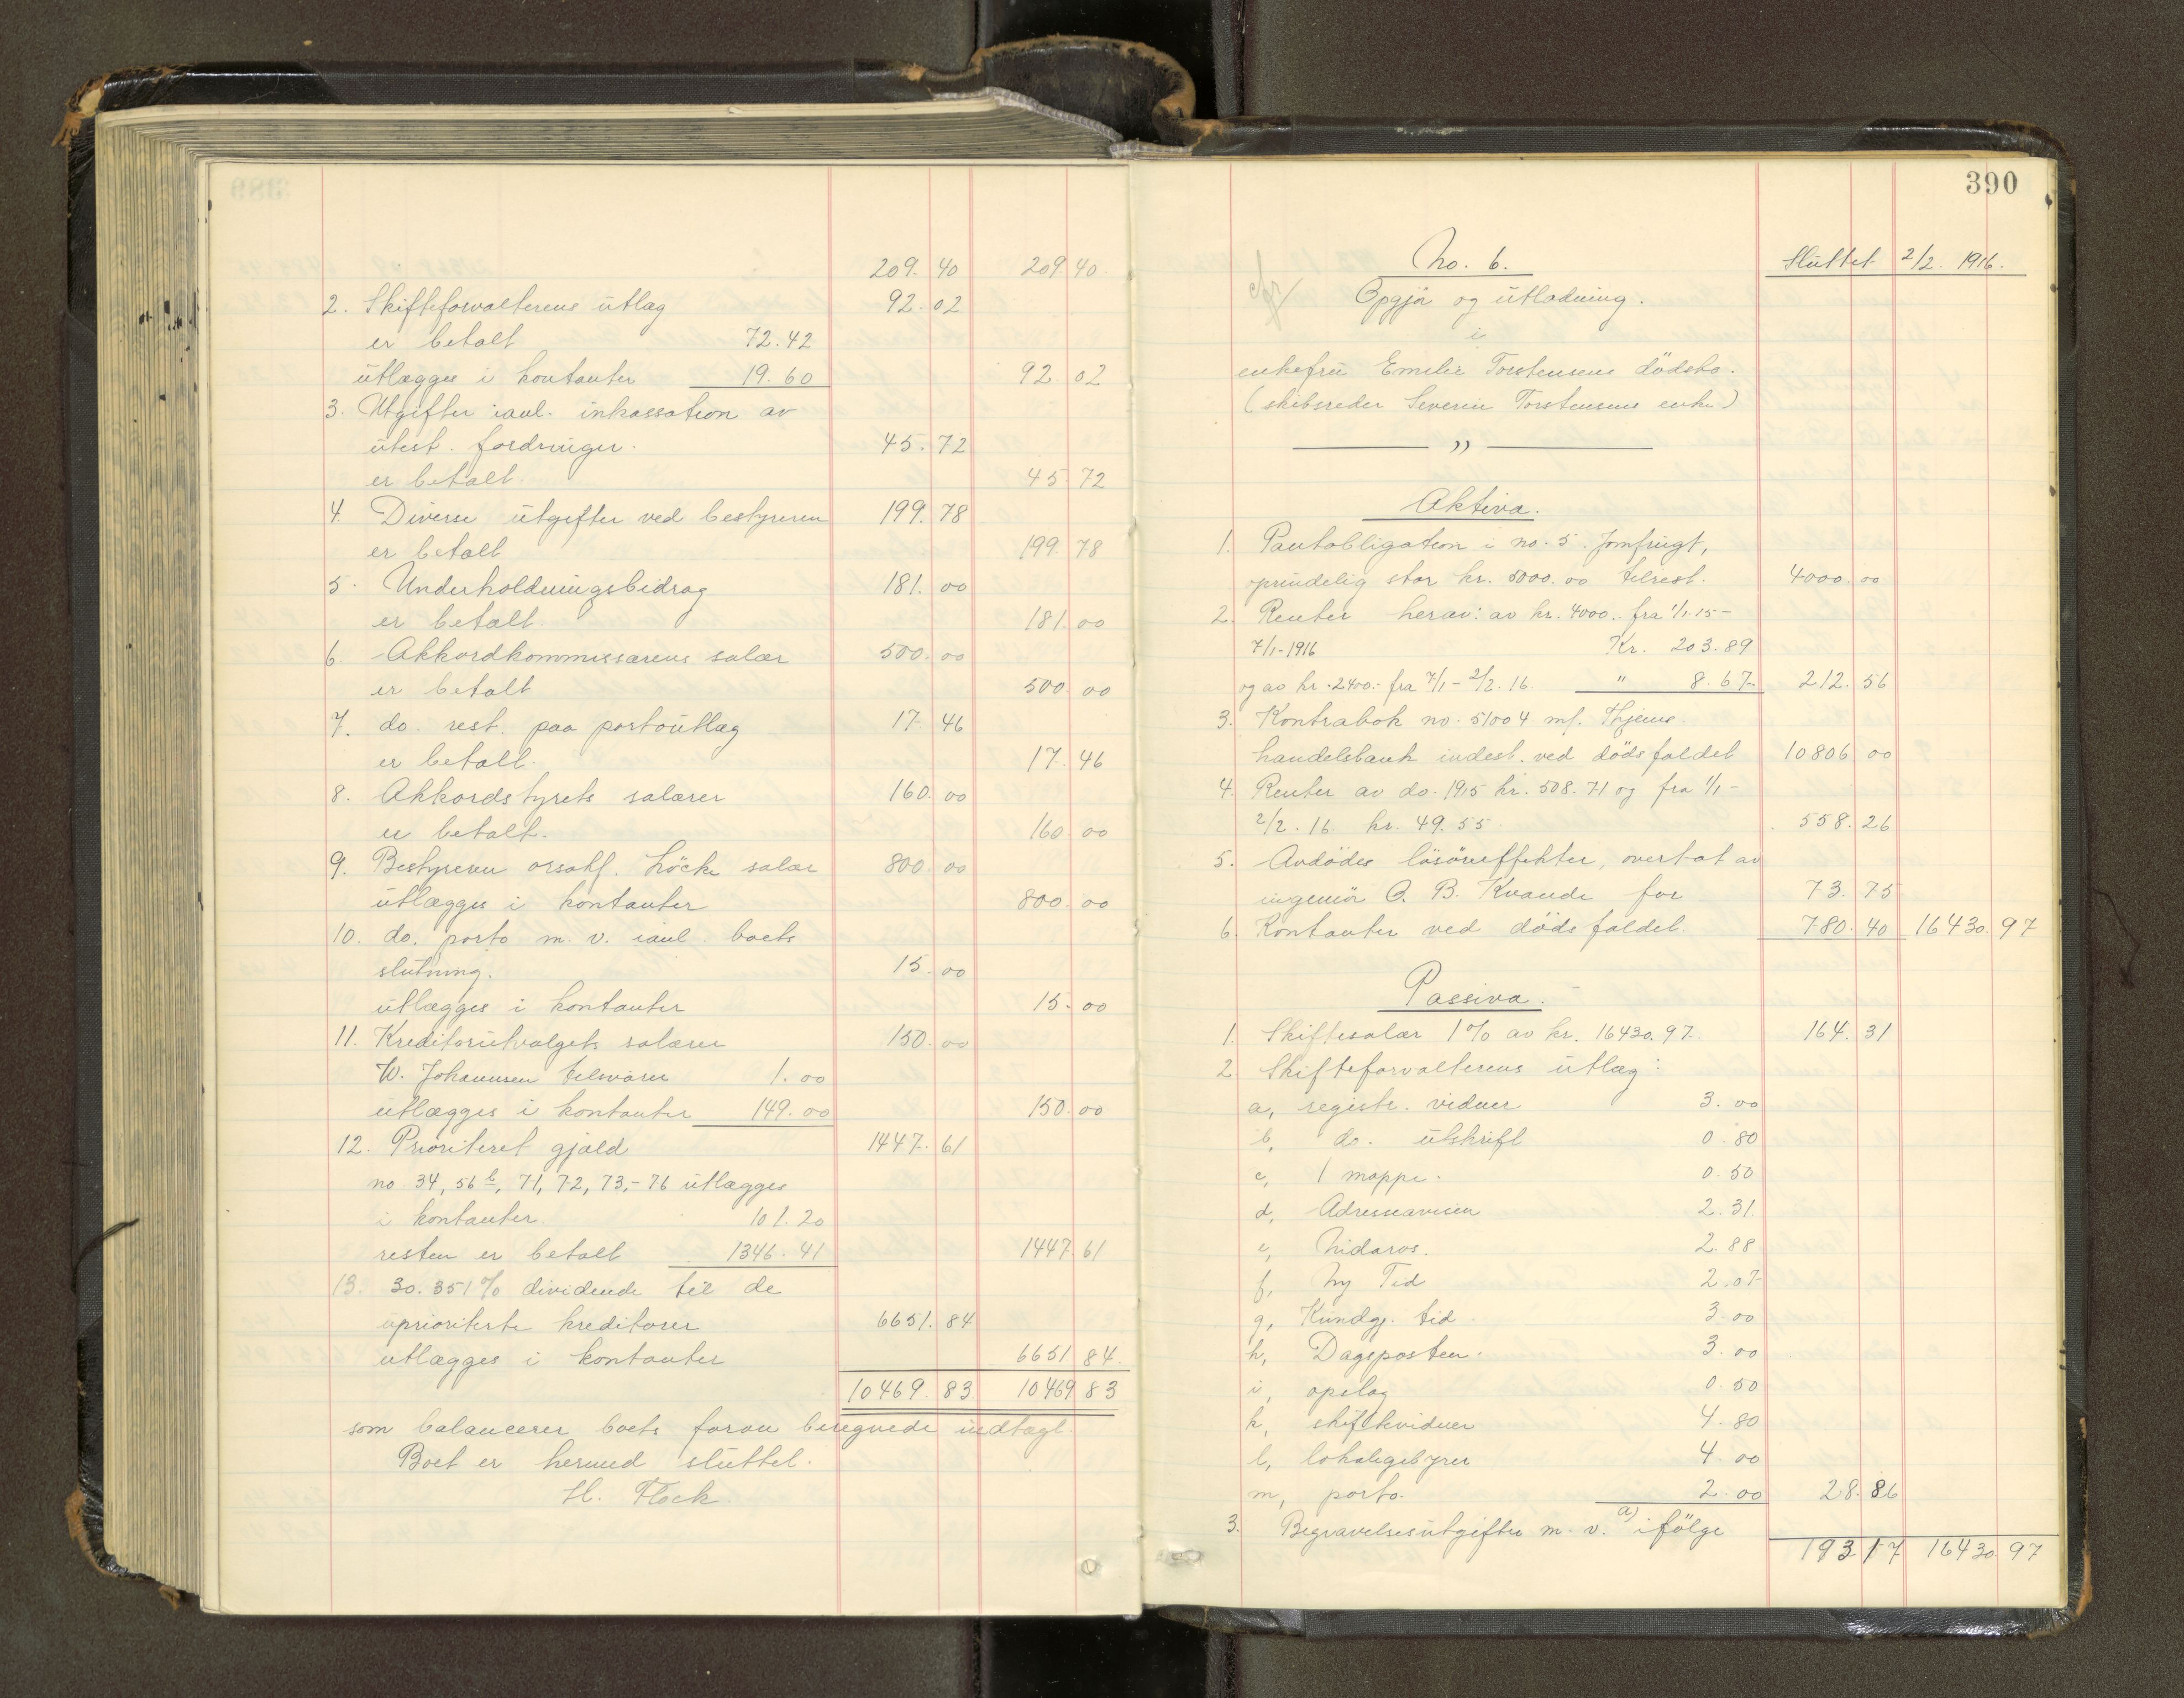 209. 40 209 40.
2. Skifteforvalterens utlæg 92. 02
er betalt 72.42
utlægges i kontanter 19.60 92. 02
3. Utgifter i anl. inkassation av
utest. fordringer. 45. 72
er betalt. 45. 72
4. Diverse utgifter ved bestyreren 199. 78
er betalt 199. 78
5. Underholdningsbidrag 181. 00
er betalt. 181. 00
6. Akkordkommissærens salær 500. 00
er betalt 500. 00
7. do. rest. paa portoutlæg 17. 46
er betalt. 17. 46
8. Akkordstyrets salærer 160. 00
er betalt. 160. 00
9. Bestyreren orsakf. Löcke salær 800. 00
utlægges i kontanter 800. 00
10. do. porto m. v. i anl. boets
slutning. 15. 00
utlægges i kontanter 15. 00
11. Kreditorutvalgets salærer 150. 00
W. Johannsen tilsvarer 1. 00
utlægges i kontanter 149. 00 150. 00
12. Prioritert gjæld 1447. 61
no 34, 56 b, 71, 72, 73,- 76 utlægges
i kontanter. 101. 20
resten er betalt 1346. 41 1447 61
13. 30.351 % dividende til de
uprioriterte kreditorer 6651. 84
utlægges i kontanter 6651 84.
10469. 83 10469 83
som balancerer boets foran beregnede indtægt.
Boet er hermed sluttet.
H. Flock.
390
No. 6. Sluttet 2/2. 1916.
Opgjör og utlodning.
i
enkefru Emilie Torstensens dödsbo.
(skibsreder Severin Torstensens enke)
"
Aktiva.
1. Pantobligation i no. 5. Jomfrugt,
oprindelig stor kr. 5000.00 tilrest. 4000. 00
2. Renter herav: av kr. 4000.- fra 1/1-15-
7/1-1916 Kr. 203.89
og av kr. 2400.- fra 7/1 - 2/2. 16. " 8. 67 212. 56
3. Kontrabok no. 51004 m/. Thjems
handelsbank indest. ved dödsfaldet 10806 00
4. Renter av do. 1915 kr. 508.71 og fra 1/1-
2/2. 16 kr. 49.55 558. 26
5. Avdödes lösöreffekter, overtat av
ingeniör O. B. Kvande for 73. 75
6. Kontanter ved dödsfaldet 780. 40 16430. 97
Passiva.
1. Skiftesalær 1 % av kr. 16430.97. 164. 31
2. Skifteforvalterens utlæg:
a, registr. vidner 3. 00
b, do. utskrift 0. 80
c, 1 mappe. 0. 50
d, Adresseavisen 2. 31
e, Nidaros. 2. 88
f, Ny Tid 2. 07
g, Kundgj. tid. 3. 00
h, Dagsposten. 3. 00
i, opslag 0. 50
k, skiftevidner 4. 80
l, lokalegebyrer 4. 00
m, porto. 2. 00 28. 86
3. Begravelsesutgifter m. v. a) ifölge
193 17 16430. 97